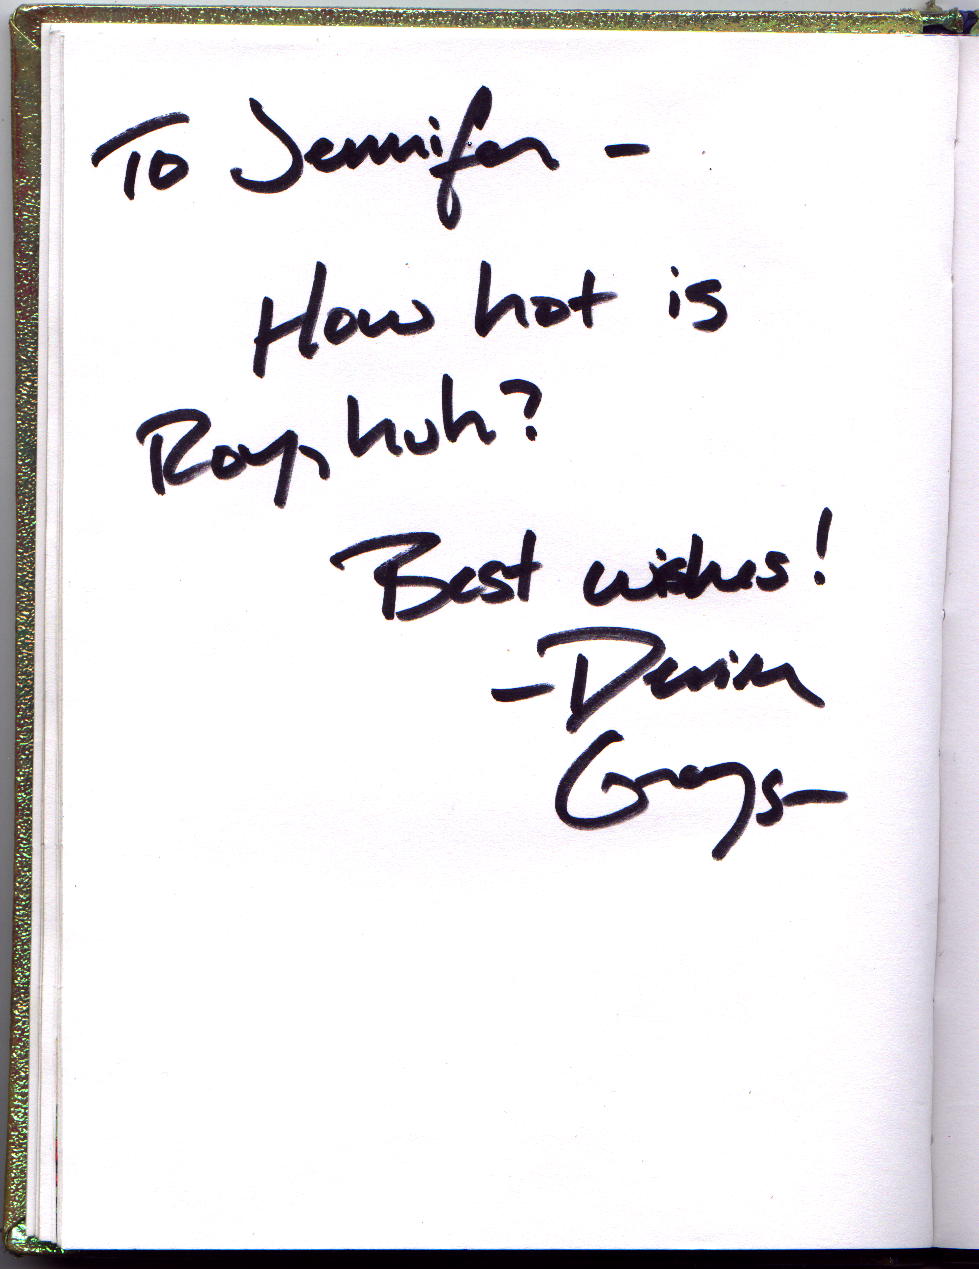 To Jennifer -
How hot is
Roy, huh?
Best wishes!
- Devin
Grays-